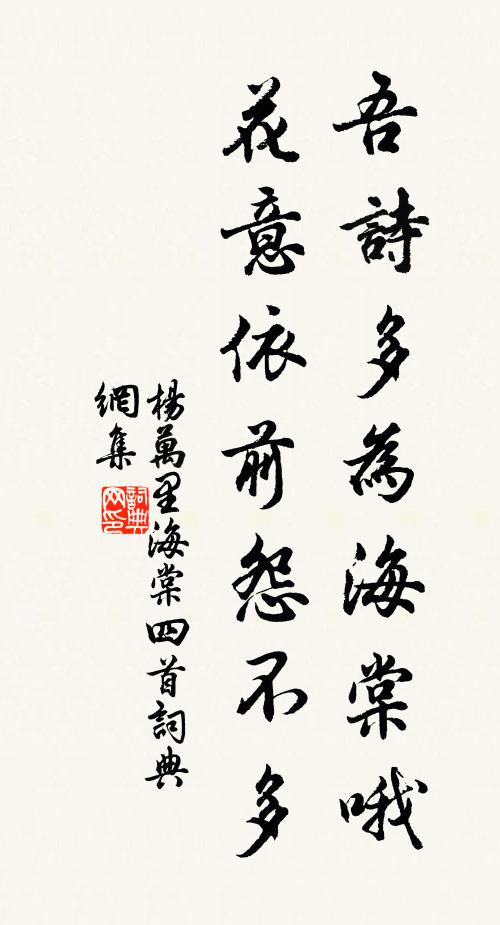 吾詩多為海棠哦
花意依前怨不多
楊萬里海棠四首詞典
網集
詞典网印